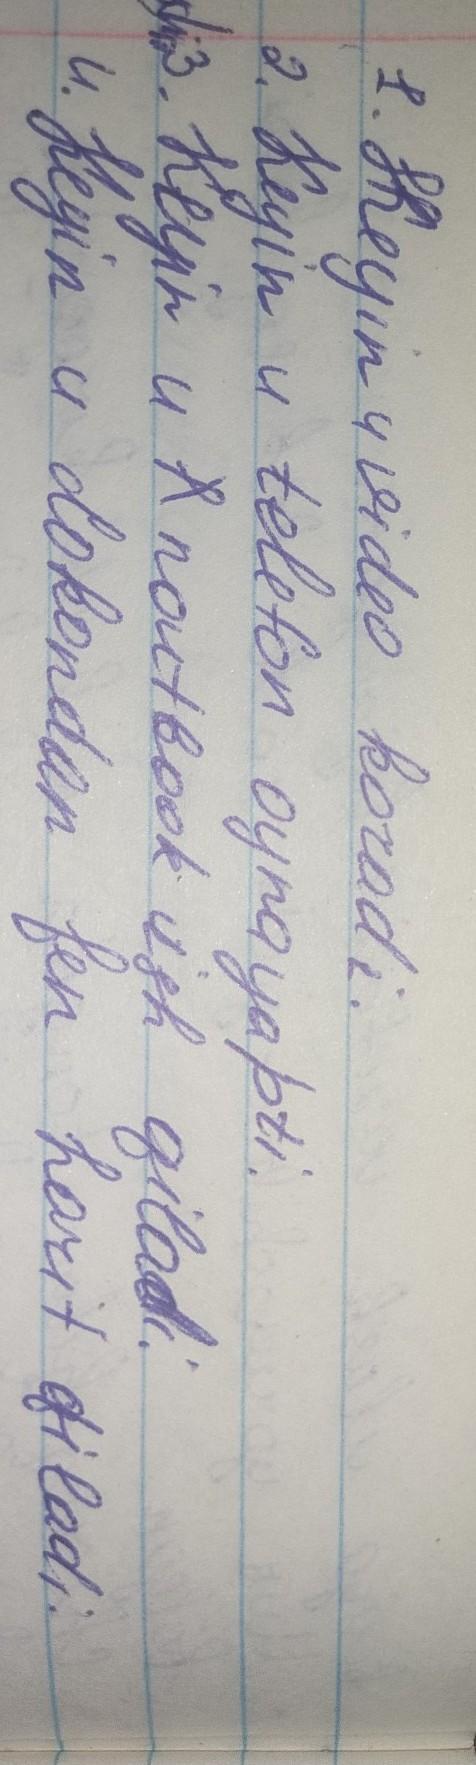 1. Keyin u video korad i.
2. Keyin u telefon oynayapti.
3. Keyin u noutbook ish qiladi.
4. Keyin u dokondan fen harit qiladi.